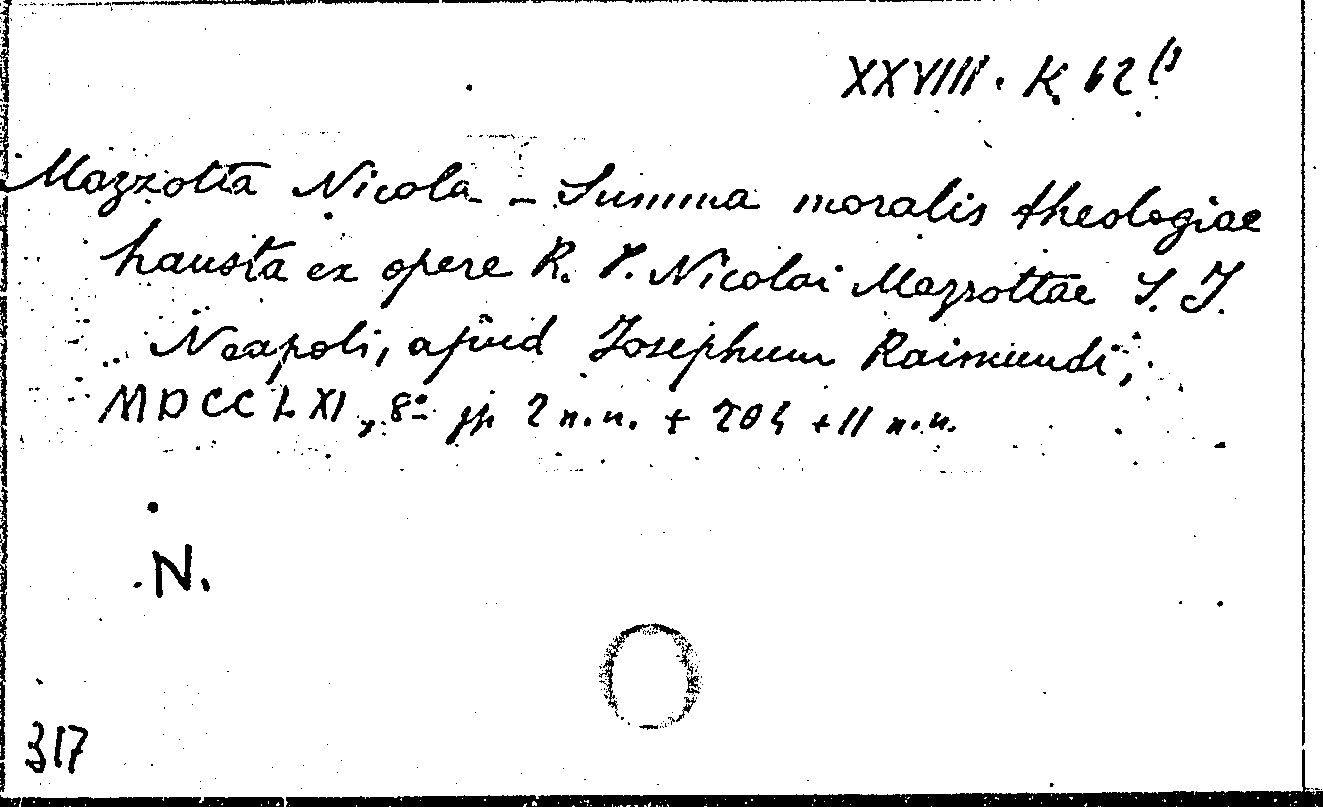 XXVIII. K. 62 (1
Mazzotta Nicola - Summa moralis theologiae
hausta ex opere R. P. Nicolai Mazzottae S. J.
Neapoli, apud Josephum Raimundi,
MDCCLXI, 8° pp 2 n.n. + 204 + 11 n.n.
N.
317